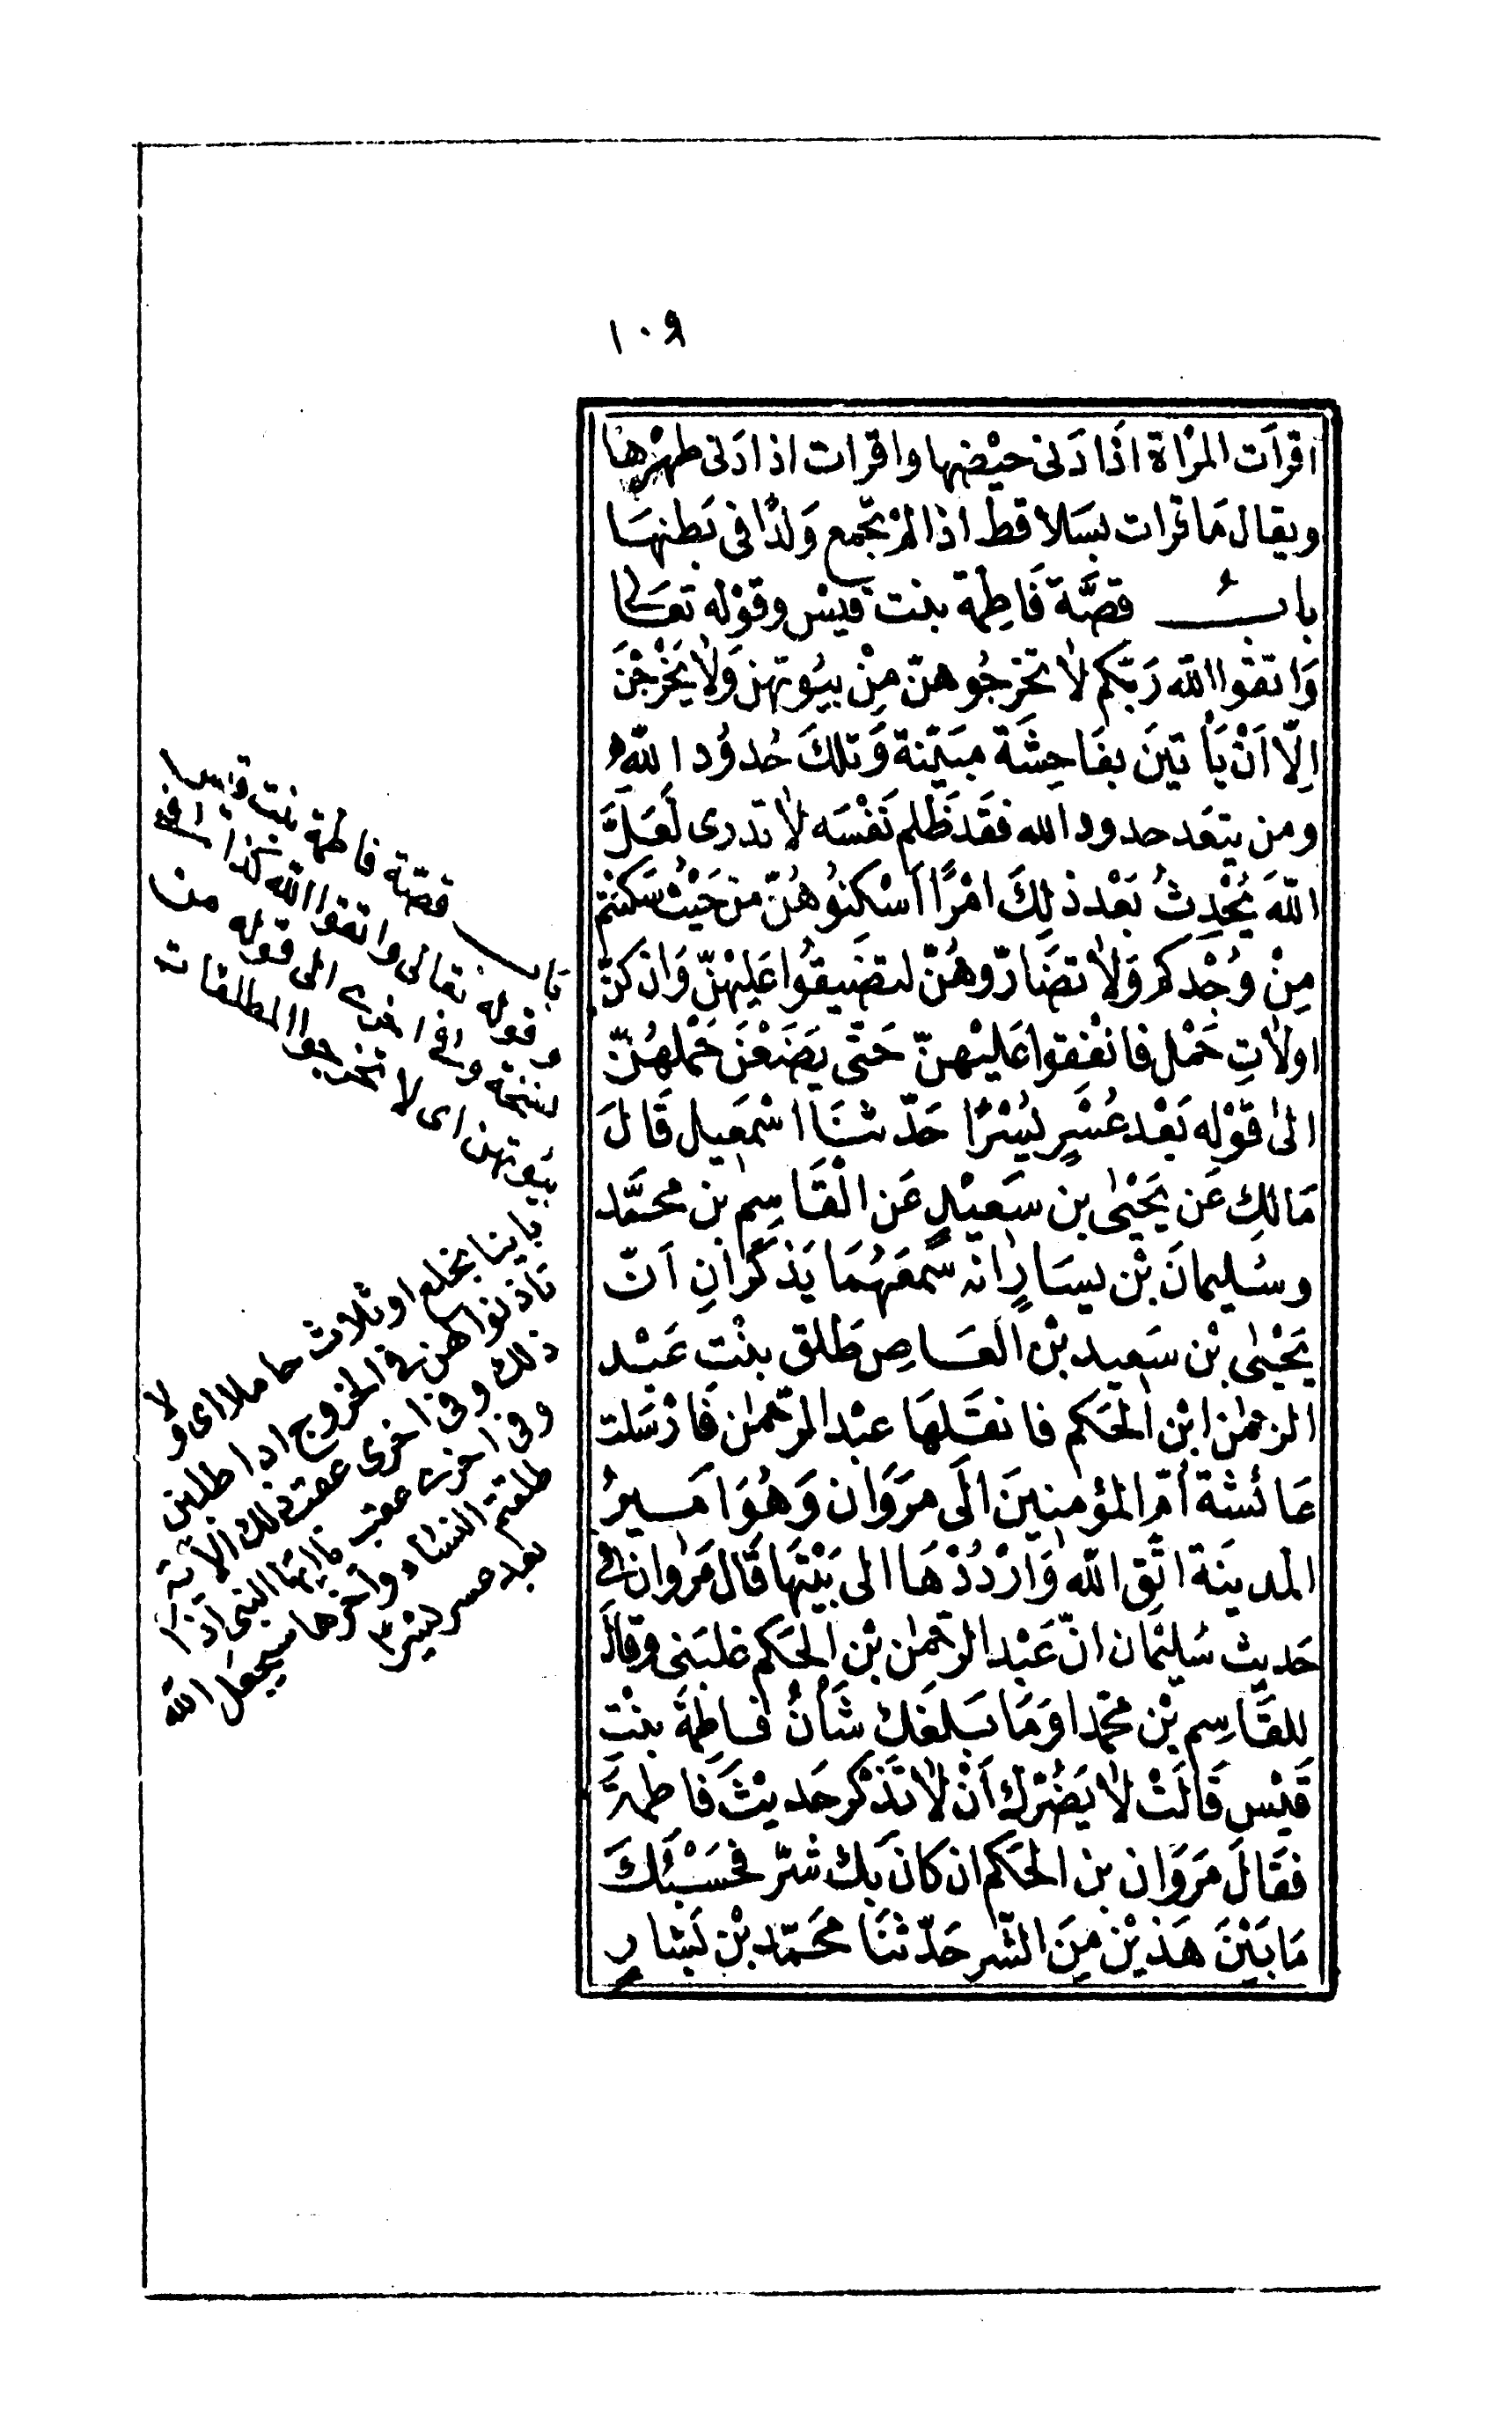 ١٠٩
اقرأت المرأة اذا دنى حيضها واقرأت اذا دنى طهرها
ويقال ما قرأت بسلا قط اذا لم تجمع ولدًا فى بطنها
باب قصّة فاطمة بنت قيس وقوله تعالى
وَاتقوا اللّه رَبّكم لا تخرجُوهنّ مِنْ بيُوتهن وَلا يَخرُجْنَ
اِلّا اَنْ يَأتينَ بفَاحِشَة مبَيّنة وَتلكَ حُدوُد اللّه
ومن يتعَد حدود الله فقَد ظَلم نَفْسَه لا تدرى لَعَلّ
اللّهَ يُحْدِثُ بَعْد ذلِكَ امْرًا اَسْكِنُوهُنّ من حَيْثُ سَكنتم
مِنْ وُجْدكم وَلا تضَارّوهُنّ لتضَيقُوا عَليْهنّ وَان كنّ
اولاتِ حَمْل فانْفقوا عَليْهنّ حَتّى يَضَعْنَ حَمْلهُنّ
الى قوْله بَعْد عُسْرٍ يُسْرًا حَدّثنَا اسْمعيل قَالَ
مَالكِ عَن يَحْيٰى بن سَعيْدٍ عَن الْقَاسِم بن محمَّد
وسُليمانَ بْن يسَارٍ انه سَمعَهُمَا يَذكرَانِ اَنّ
يَحْيٰى بْن سَعيد بْن العَاصِ طَلق بنْتِ عَبْد
الرحمٰن ابْن الحَكم فانتقَلهَا عبْد الرّحمٰن فَارْسَلت
عَائشة اُمّ المؤمنينَ الَى مَروَان وَهُوَ امَيرُ
المدينَة اتَّق اللّه وَارْدُدْهَا الى بَيْتهَا قَال مَرْوان فى
حَديث سُليْمان انّ عَبْد الرحمٰن بْن الحَكم غلبَنى وقال
للقَاسِم بْن محمّد اوَمَا بَلغَك شَأنُ فاطِمَة بنْت
قَيْس قَالَتْ لا يَضُرّك اَنْ لا تَذْكر حَديْثَ فَاطمَة
فقَالَ مَروَان بن الحَكم ان كانَ بَك شرّ فحَسْبُكَ
مَا بَيْنَ هَذيْن مِنَ الشّر حَدّثنَا محَمّد بْن بَشار
باب قصّة فاطمة بنت قيس
وقوله تعالى واتقوا اللّه كذا فى
نسخة وفى اخرى الى قوله من
بيوتهن اى لا تخرجوا المطلقات
باينا بخلع او ثلاث حاملا اى ولا
تأذنوا لهن فى الخروج اذا طلبن
ذلك وفى اخرى عقب ذلك الآية
وفى اخرى عقب يا ايها النبى اذا
طلقتم النساء واخرها سيجعل اللّه
بعد عسر يسرا